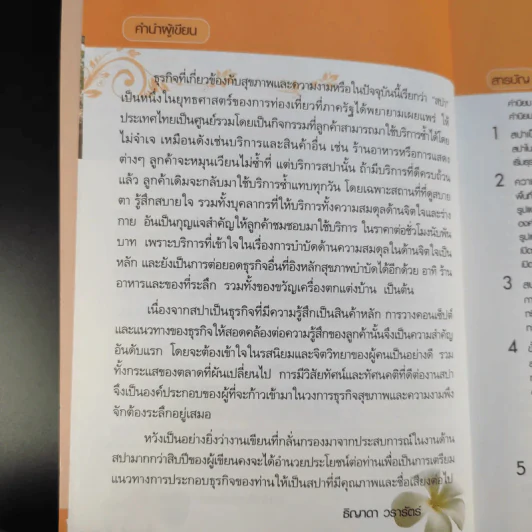 คำนำผู้เขียน
ธุรกิจที่เกี่ยวข้องกับสุขภาพและความงามหรือในปัจจุบันนี้เรียกว่า "สปา"
เป็นหนึ่งในยุทธศาสตร์ของการท่องเที่ยวที่ภาครัฐได้พยายามเผยแพร่ ให้
ประเทศไทยเป็นศูนย์รวมโดยเป็นกิจกรรมที่ลูกค้าสามารถมาใช้บริการซ้ำได้โดย
ไม่จำเจ เหมือนดังเช่นบริการและสินค้าอื่น เช่น ร้านอาหารหรือการแสดง
ต่างๆ ลูกค้าจะหมุนเวียนไม่ซ้ำที่ แต่บริการสปานั้น ถ้ามีบริการที่ดีครบถ้วน
แล้ว ลูกค้าเดิมจะกลับมาใช้บริการซ้ำแทบทุกวัน โดยเฉพาะสถานที่ที่ดูสบาย
ตา รู้สึกสบายใจ รวมทั้งบุคลากรที่ให้บริการทั้งความสมดุลด้านจิตใจและร่าง
กาย อันเป็นกุญแจสำคัญให้ลูกค้าชมชอบมาใช้บริการ ในราคาต่อชั่วโมงนับพัน
บาท เพราะบริการที่เข้าใจในเรื่องการบำบัดด้านความสมดุลในด้านจิตใจเป็น
หลัก และยังเป็นการต่อยอดธุรกิจอื่นที่อิงหลักสุขภาพบำบัดได้อีกด้วย อาทิ ร้าน
อาหารและของที่ระลึก รวมทั้งของขวัญเครื่องตกแต่งบ้าน เป็นต้น
เนื่องจากสปาเป็นธุรกิจที่มีความรู้สึกเป็นสินค้าหลัก การวางคอนเซ็ปต์
และแนวทางของธุรกิจให้สอดคล้องต่อความรู้สึกของลูกค้านั้นจึงเป็นความสำคัญ
อันดับแรก โดยจะต้องเข้าใจในรสนิยมและจิตวิทยาของผู้คนเป็นอย่างดี รวม
ทั้งกระแสของตลาดที่ผันเปลี่ยนไป การมีวิสัยทัศน์และทัศนคติที่ดีต่องานสปา
จึงเป็นองค์ประกอบของผู้ที่จะก้าวเข้ามาในวงการธุรกิจสุขภาพและความงามพึง
จักต้องระลึกอยู่เสมอ
หวังเป็นอย่างยิ่งว่างานเขียนที่กลั่นกรองมาจากประสบการณ์ในงานด้าน
สปามากกว่าสิบปีของผู้เขียนคงจะได้อำนวยประโยชน์ต่อท่านเพื่อเป็นการเตรียม
แนวทางการประกอบธุรกิจของท่านให้เป็นสปาที่มีคุณภาพและชื่อเสียงต่อไป
ธิญาดา วรารัตร์
สารบัญ
คำนิยม
คำนิยม
1 สปาใ
สปาใน
เริ่มธุร
2 ควา
พื้นที่
รูปแ
องค
รูปแ
เปิด
เปิด
3 สป
กา
กา
4
5